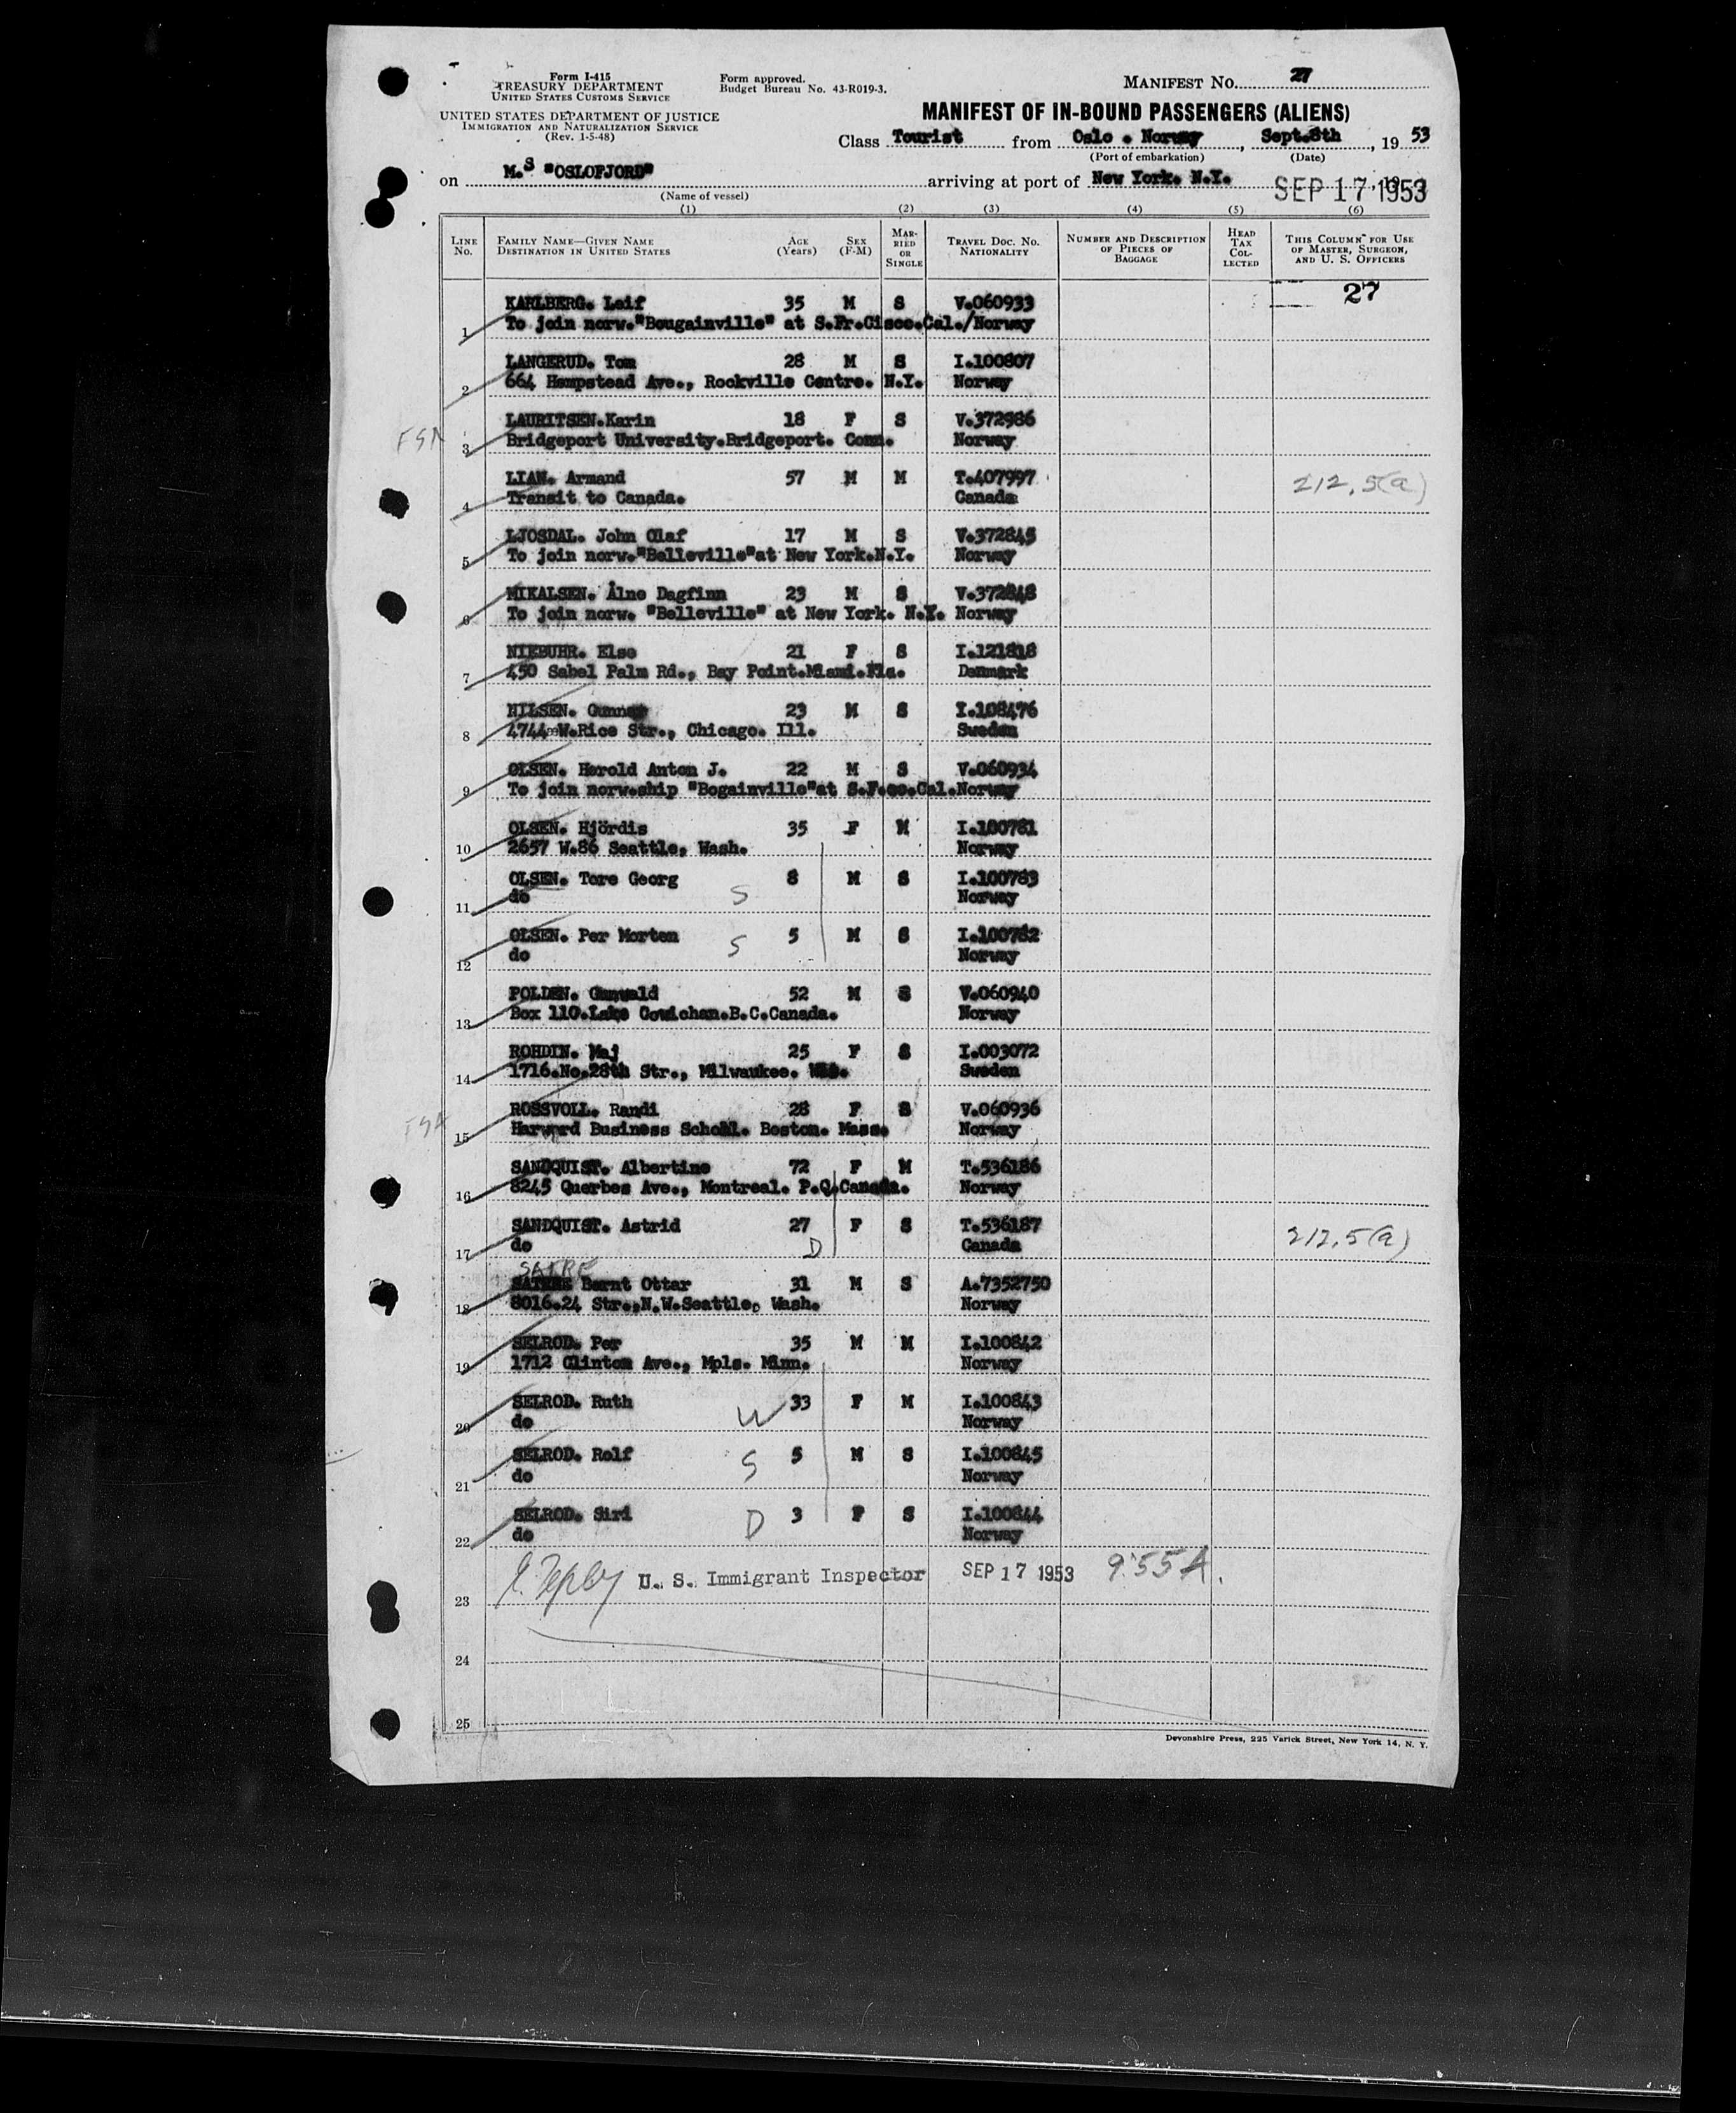 Form I-415
TREASURY DEPARTMENT
UNITED STATES CUSTOMS SERVICE
UNITED STATES DEPARTMENT OF JUSTICE
IMMIGRATION AND NATURALIZATION SERVICE
(Rev. 1-5-48)
Form approved.
Budget Bureau No. 43-R019-3.
MANIFEST NO. 27
MANIFEST OF IN-BOUND PASSENGERS (ALIENS)
Class Tourist from Oslo . Norway, Sept.8th, 19 53
(Port of embarkation) (Date)
on M.S "OSLOFJORD" arriving at port of New York. N.Y. SEP 17 1953
(Name of vessel)
(1) (2) (3) (4) (5) (6)
LINE No. FAMILY NAME—GIVEN NAME DESTINATION IN UNITED STATES AGE (Years) SEX (F-M) MARRIED OR SINGLE TRAVEL DOC. NO. NATIONALITY NUMBER AND DESCRIPTION OF PIECES OF BAGGAGE HEAD TAX COLLECTED THIS COLUMN FOR USE OF MASTER, SURGEON, AND U. S. OFFICERS
27
KARLBERG. Leif 35 M S V.060933
1 To join norw."Bougainville" at S.Fr.Cisco.Cal./Norway
LANGERUD. Tom 28 M S I.100807
2 664 Hempstead Ave., Rockville Centre. N.Y. Norway
LAURITSEN.Karin 18 F S V.372986
3 Bridgeport University.Bridgeport. Conn. Norway
LIAN. Armand 57 M M T.407997 212.5(a)
4 Transit to Canada. Canada
LJOSDAL. John Olaf 17 M S V.372845
5 To join norw."Belleville"at New York.N.Y. Norway
MIKALSEN. Ålne Dagfinn 23 M S V.372848
6 To join norw. "Belleville" at New York. N.Y. Norway
NIEBUHR. Else 21 F S I.121818
7 450 Sabel Palm Rd., Bay Point.Miami.Fla. Denmark
NILSEN. Gunnar 23 M S I.108476
8 4744 W.Rice Str., Chicago. Ill. Sweden
OLSEN. Harold Anton J. 22 M S V.060934
9 To join norw.ship "Bogainville"at S.F.co.Cal.Norway
OLSEN. Hjördis 35 F M I.100781
10 2657 W.86 Seattle, Wash. Norway
OLSEN. Tore Georg S 8 M S I.100783
11 do Norway
OLSEN. Per Morten S 5 M S I.100782
12 do Norway
POLDEN. Gunvald 52 M S V.060940
13 Box 110.Lake Cowichan.B.C.Canada. Norway
ROHDIN. Maj 25 F S I.003072
14 1716.No.28th Str., Milwaukee. Wis. Sweden
ROSSVOLL. Randi 28 F S V.060936
15 Harward Business School. Boston. Mass. Norway
SANDQUIST. Albertine 72 F M T.536186
16 8245 Querbes Ave., Montreal. P.Q.Canada. Norway
SANDQUIST. Astrid 27 F S T.536187 212.5(a)
17 do D Canada
SATRE
Bernt Ottar 31 M S A.7352750
18 8016.24 Str.,N.W.Seattle, Wash. Norway
SELROD. Per 35 M M I.100842
19 1712 Clinton Ave., Mpls. Minn. Norway
SELROD. Ruth W 33 F M I.100843
20 do Norway
SELROD. Rolf S 5 M S I.100845
21 do Norway
SELROD. Siri D 3 F S I.100844
22 do Norway
U. S. Immigrant Inspector SEP 17 1953 9:55A.
23
24
25
Devonshire Press, 225 Varick Street, New York 14, N. Y.